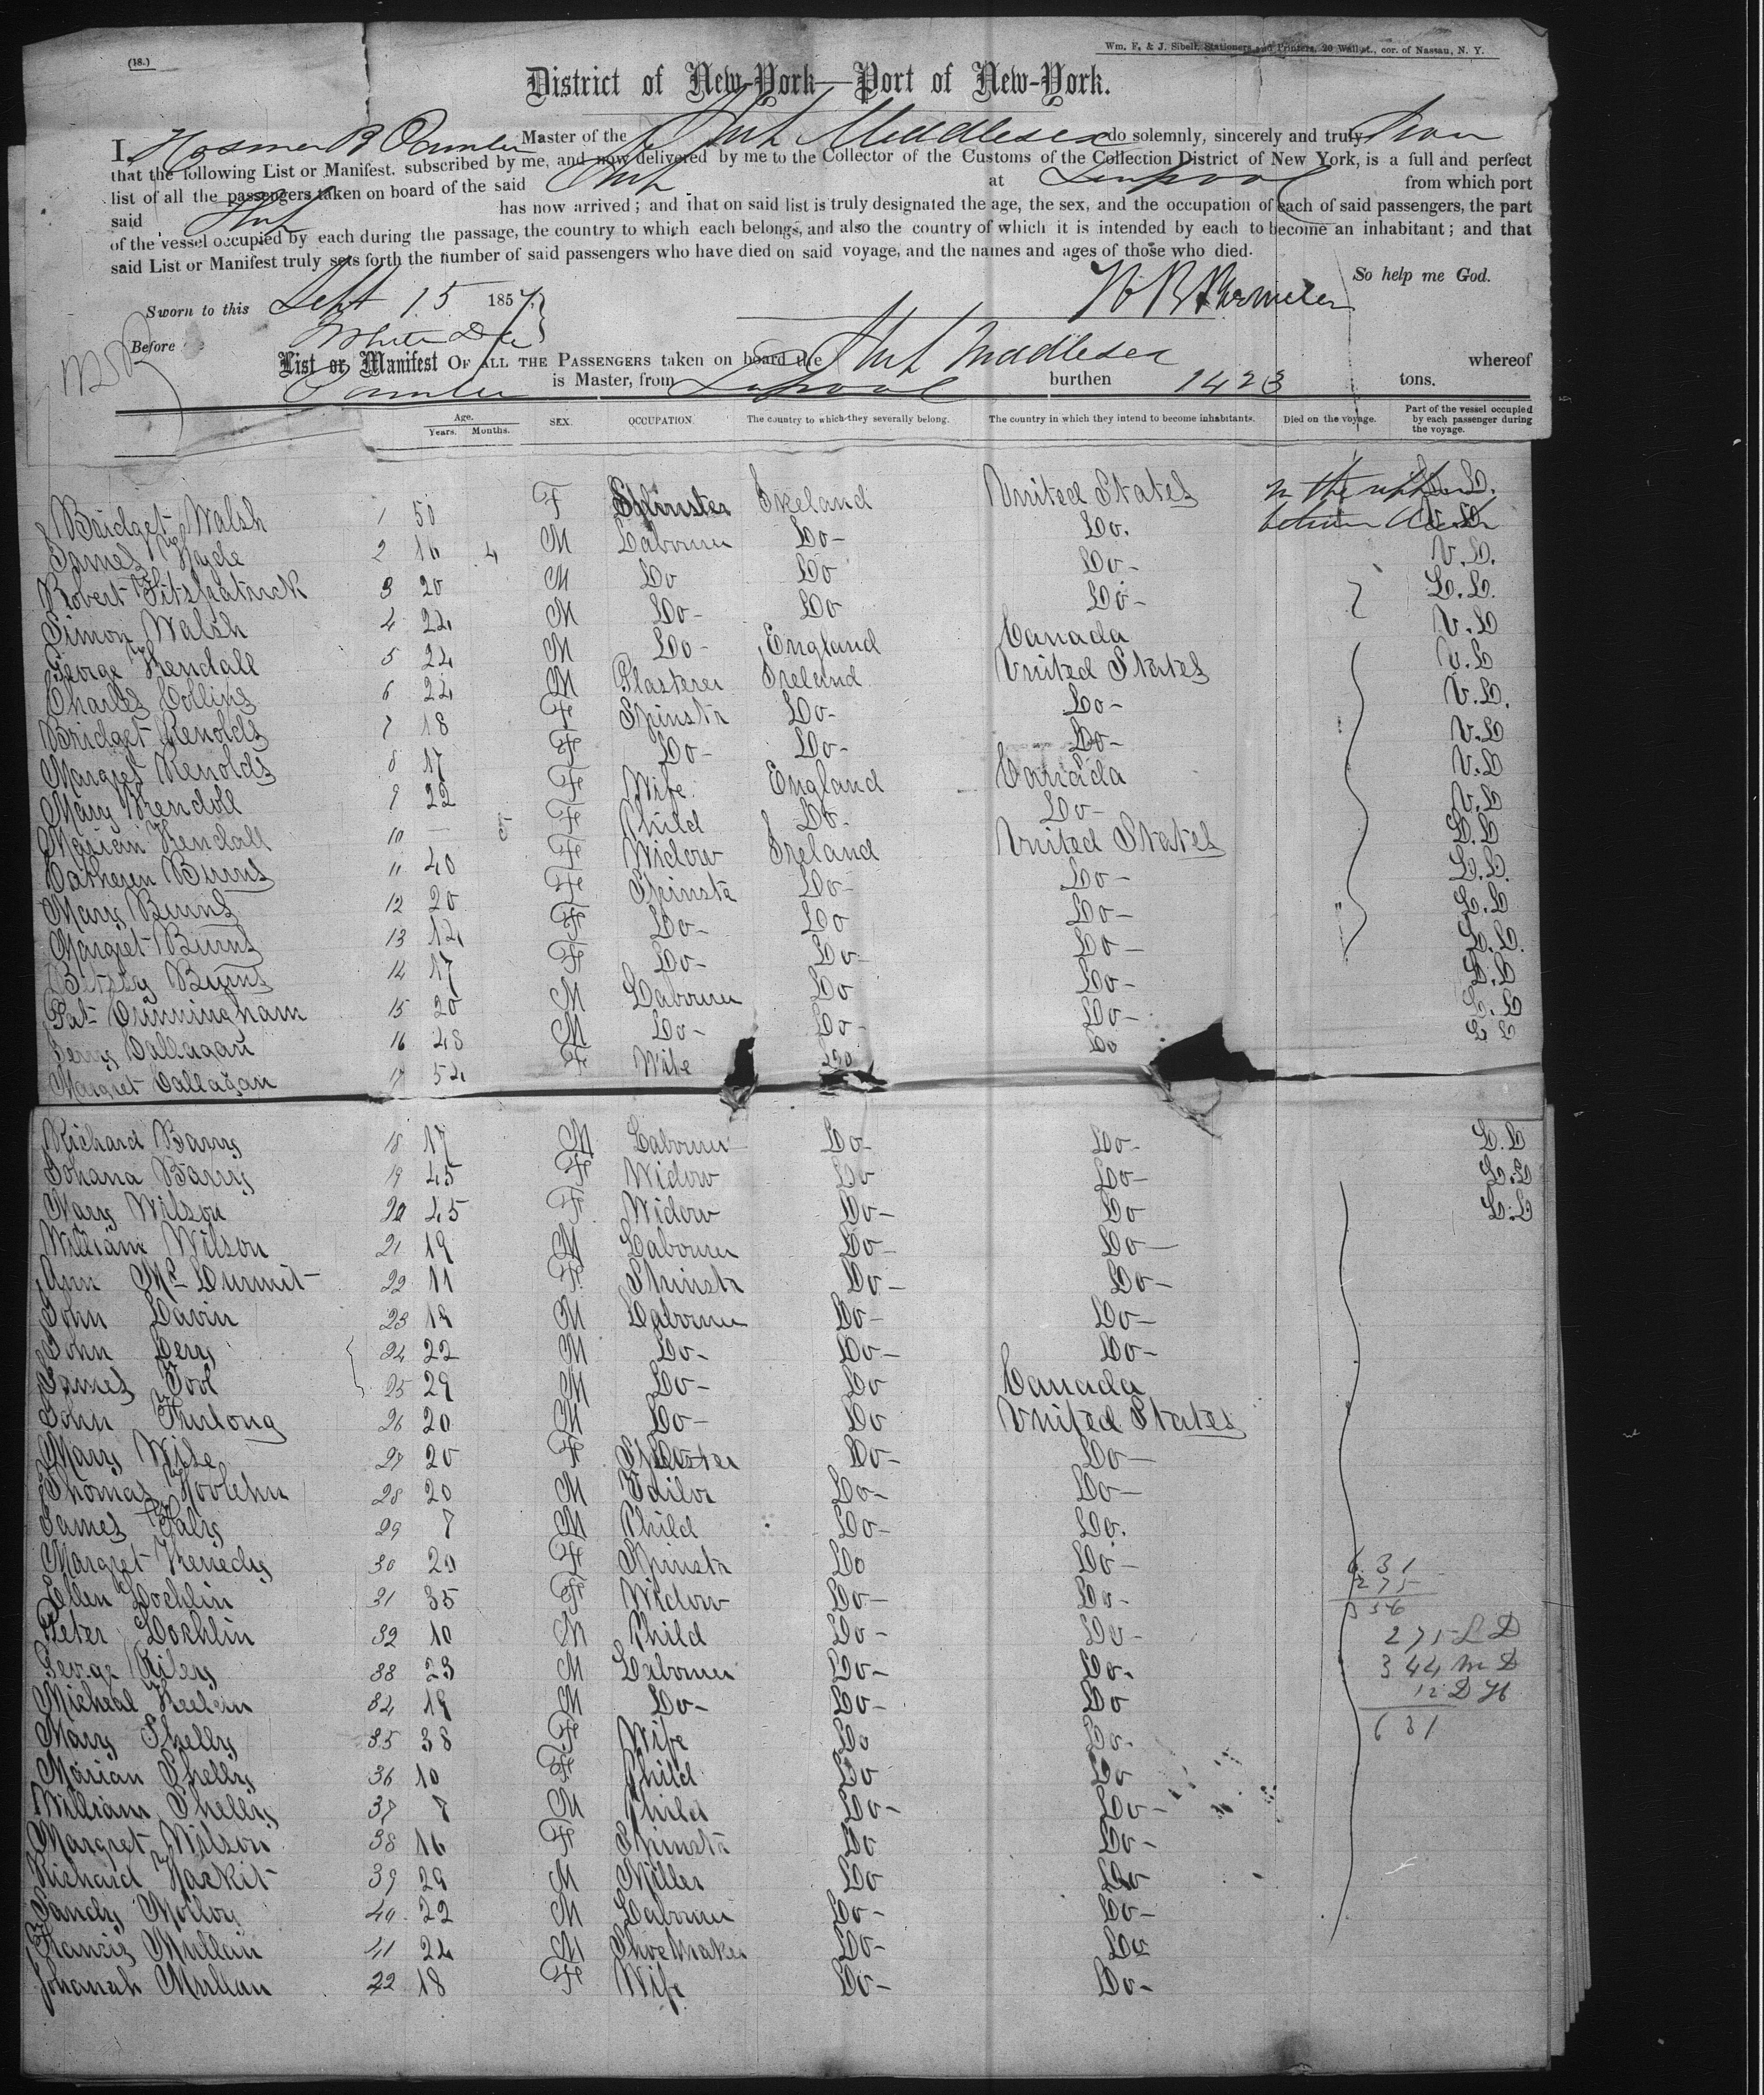 (18.)
Wm. F. & J. Sibell, Stationers and Printers, 20 Wall st., cor. of Nassau, N. Y.
District of New-York—Port of New-York.
I, Hosmer B Master of the Ship Middlesex do solemnly, sincerely and truly swear
that the following List or Manifest, subscribed by me, and now delivered by me to the Collector of the Customs of the Collection District of New York, is a full and perfect
list of all the passengers taken on board of the said Ship at Liverpool from which port
said Ship has now arrived; and that on said list is truly designated the age, the sex, and the occupation of each of said passengers, the part
of the vessel occupied by each during the passage, the country to which each belongs, and also the country of which it is intended by each to become an inhabitant; and that
said List or Manifest truly sets forth the number of said passengers who have died on said voyage, and the names and ages of those who died.
So help me God.
Sworn to this Sept 15 1857.
Before
List or Manifest OF ALL THE PASSENGERS taken on board the Ship Middlesex whereof
is Master, from Liverpool burthen 1423 tons.
Age. Years. Months. SEX. OCCUPATION. The country to which they severally belong. The country in which they intend to become inhabitants. Died on the voyage. Part of the vessel occupied by each passenger during the voyage.
Bridget Walsh 1 50 F Spinster Ireland United States in the upper L.D.
James Hyde 2 16 4 M Labourer Do- Do. between decks
Robert Fitzpatrick 3 20 M Do Do Do- V.D.
Simon Walsh 4 24 M Do- Do Do- L.D.
George Kendall 5 24 M Do- England Canada V.D
Charles Collins 6 24 M Plasterer Ireland United States V.D
Bridget Renolds 7 18 F Spinstr Do- Do- V.D.
Margret Renolds 8 17 F Do- Do- Do- V.D
Mary Kendall 9 22 F Wife England Canada V.D
Marian Kendall 10 — F Child Do. Do- V.D
Catheren Burns 11 40 F Widow Ireland United States L.D
Mary Burns 12 20 F Spinstr Do- Do- L.D.
Margret Burns 13 14 F Do- Do Do- L.D
Betsey Burns 14 17 F Do- Do- Do- L.D.
Pat Cunningham 15 20 M Labourer Do Do- L.D
Jerry Callagan 16 48 M Do- Do- Do- L.D
Margret Callagan 17 54 F Wife Do Do L D
Richard Barry 18 17 M Labourer Do- Do- L.D
Johana Barry 19 45 F Widow Do Do- L.D
Mary Wilson 20 45 F Widow Do- Do L.D
William Wilson 21 19 M Labourer Do- Do-
Ann Mc Durmit 22 11 F. Spinstr Do- Do-
John Davin 23 19 M Labourer Do- Do-
John Dery 24 22 M Do- Do- Do-
James Tool 25 29 M Do- Do Canada
John Furlong 26 20 M Do- Do United States
Mary Wise 27 20 F Spinster Do- Do-
Thomas 28 20 M Tailor Do- Do-
James Haly 29 7 M Child Do- Do.
Margret Kenedy 30 20 F Spinstr Do Do-
Ellen Lochlin 31 35 F Widow Do- Do-
Peter Lochlin 32 10 M Child Do- Do-
George Riley 33 23 M Labourer Do- Do.
Micheal 34 19 M Do- Do- Do
Mary Shelly 35 38 F Wife Do Do.
Marian Shelly 36 10 F Child Do Do
William Shelly 37 8 M Child Do- Do-
Margret Wilson 38 16 F Spinstr Do Do-
Richard Hackit 39 29 M Miller Do Do
Sandy Molloy 40 22 M Labourer Do- Do-
Francis Mullan 41 24 M Shoemaker Do- Do
Johanah Mullan 22 18 F Wife Do- Do-
631
275
356
275 L D
344 M D
12 D H
631